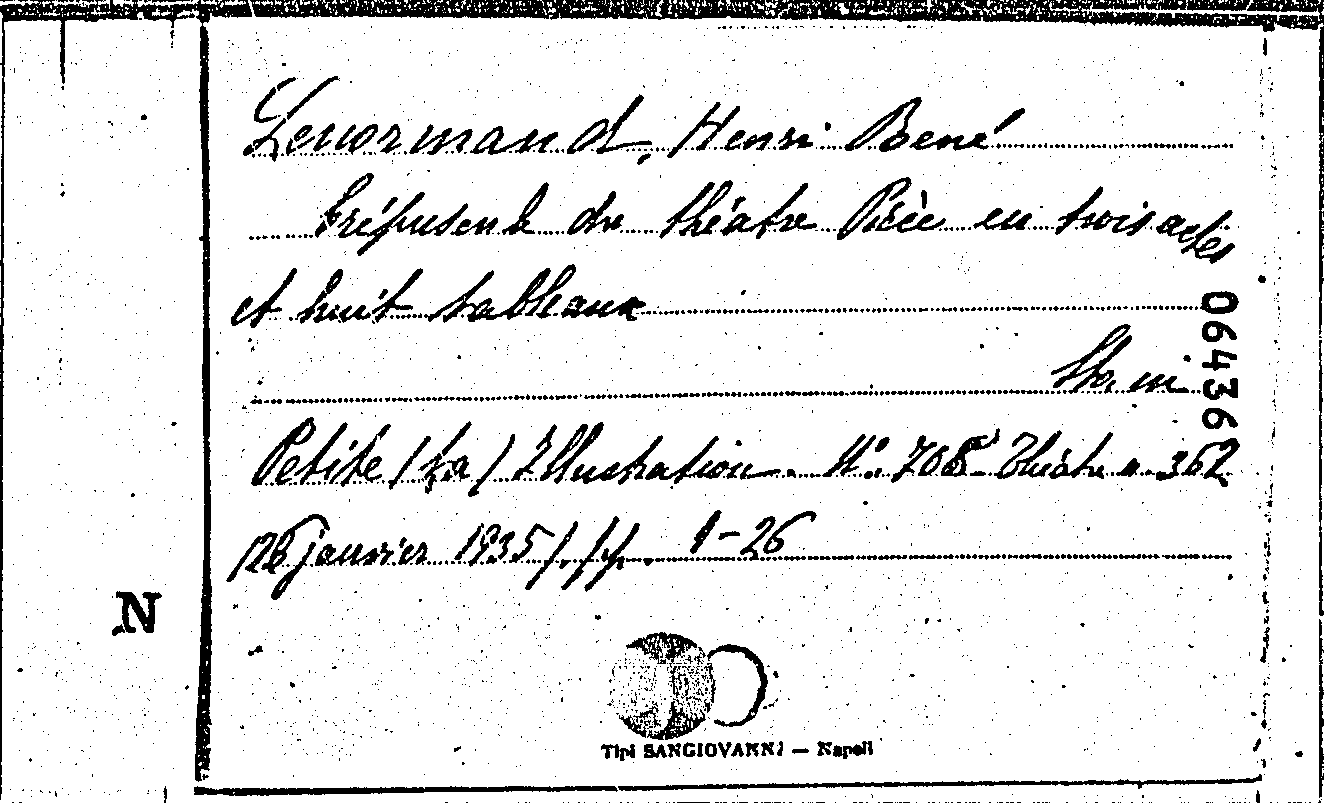 Lenormand, Henri René
Crépuscule du théâtre Pièce en trois actes
et huit tableaux
064362
Sta. in
Petite (La) Illustration. N.º 708 - Théâtre n. 362
(26 janvier 1935). pp. 1-26
N
Tipi SANGIOVANNI — Napoli